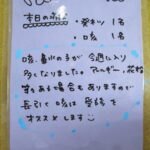 本日の欠席
・発熱 1名
・咳 1名
咳、鼻水の子が今週に入り
多くなりました。アレルギー、花粉
等のある場合もありますので
長引く咳は受診を
オススメします